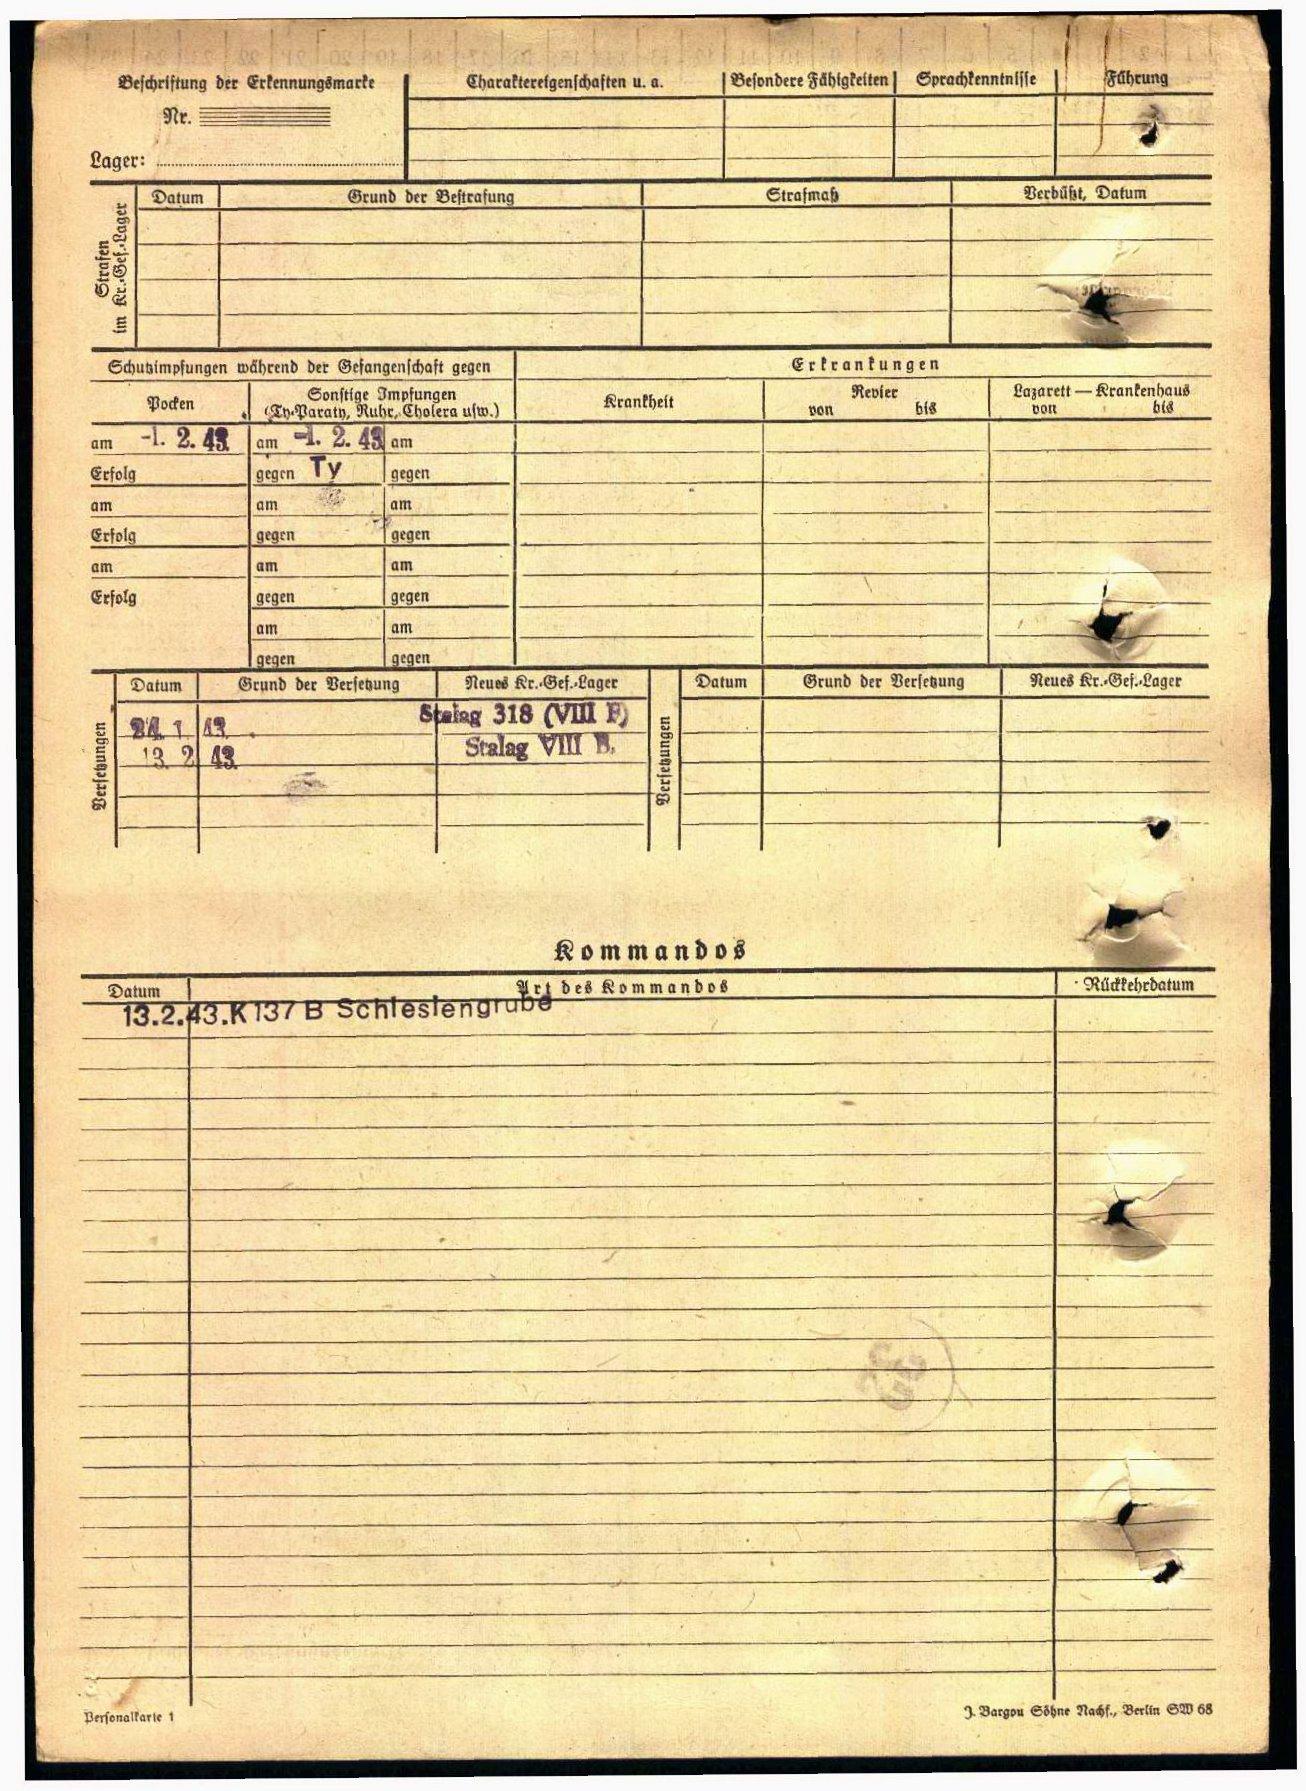 Beschriftung der Erkennungsmarke
Nr.
Lager:
Charaktereigenschaften u. a.
Besondere Fähigkeiten
Sprachkenntnisse
Führung
Strafen
im Kr.-Gef.-Lager
Datum
Grund der Bestrafung
Strafmaß
Verbüßt, Datum
Schutzimpfungen während der Gefangenschaft gegen
Erkrankungen
Pocken
Sonstige Impfungen
(Ty-Paraty, Ruhr, Cholera usw.)
Krankheit
Revier
von bis
Lazarett — Krankenhaus
von bis
am -1. 2. 43 am -1. 2. 43 am
Erfolg gegen Ty gegen
am am am
Erfolg gegen gegen
am am am
Erfolg gegen gegen
am am
gegen gegen
Versetzungen
Datum Grund der Versetzung Neues Kr.-Gef.-Lager
24. 1. 43. Stalag 318 (VIII F)
13. 2. 43. Stalag VIII B.
Versetzungen
Datum Grund der Versetzung Neues Kr.-Gef.-Lager
Kommandos
Datum Art des Kommandos Rückkehrdatum
13.2.43.K137 B Schlesiengrube
Personalkarte 1
J. Bargou Söhne Nachf., Berlin SW 68